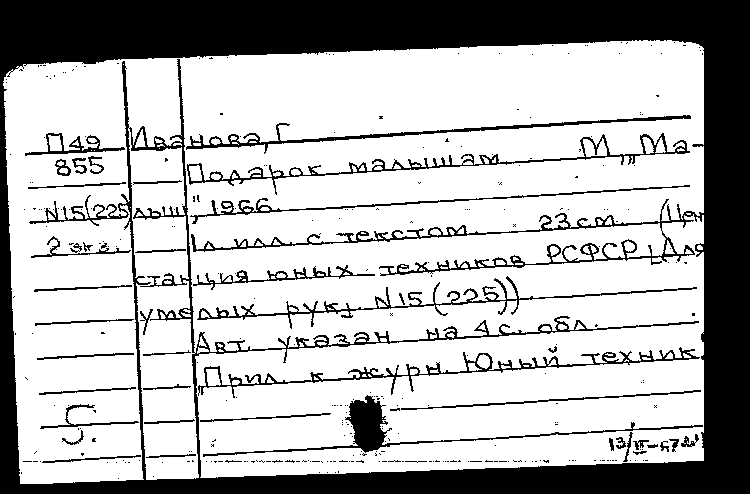 П49 Иванова, Г
855 Подарок малышам. М, "Ма-
N15(225) лыш", 1966.
2 экз. 1л илл. с текстом. 23см. (Цен
станция юных техников РСФСР. Для
умелых рук. N15(225))
Авт. указан на 4с. обл.
"Прил. к журн. Юный техник.
5.